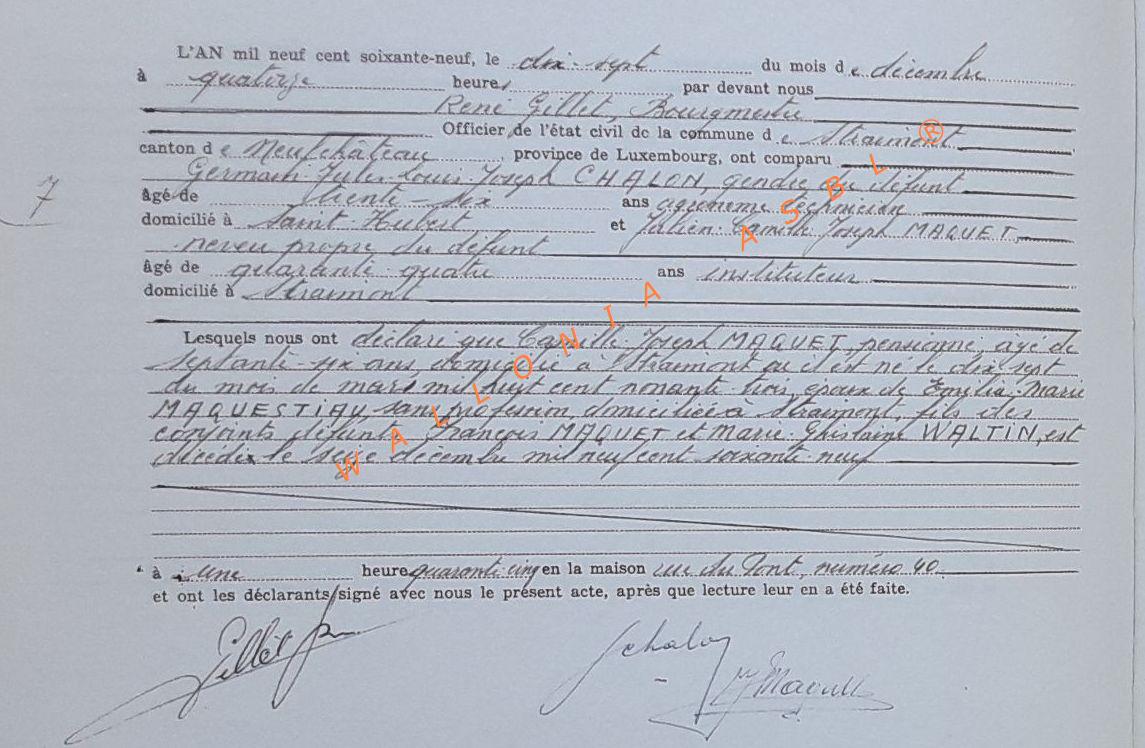 L'AN mil neuf cent soixante-neuf, le dix-sept du mois de décembre
à quatorze heures par devant nous
René Gillet, Bourgmestre
Officier de l'état civil de la commune de Straimont
canton de Neufchâteau, province de Luxembourg, ont comparu
Germain-Jules-Louis-Joseph CHALON, gendre du défunt
âgé de trente-six ans agronome technicien
domicilié à Saint-Hubert et Julien-Camille-Joseph MAQUET,
neveu propre du défunt
7
âgé de quarante-quatre ans instituteur
domicilié à Straimont
Lesquels nous ont déclaré que Camille-Joseph MAQUET, pensionné, agé de
septante-six ans, domicilié à Straimont où il est né le dix-sept
du mois de mars mil huit cent nonante-trois, époux de Emilia-Marie
MAQUESTIAU, sans profession, domiciliée à Straimont, fils des
conjoints défunts François MAQUET et Marie-Ghislaine WALTIN, est
décédé le seize décembre mil neuf cent soixante-neuf
à une heure quarante cinq en la maison rue du Pont, numéro 40
et ont les déclarants signé avec nous le présent acte, après que lecture leur en a été faite.
Gillet
Jchalon
Maquet
WALLONIA ASBL ®